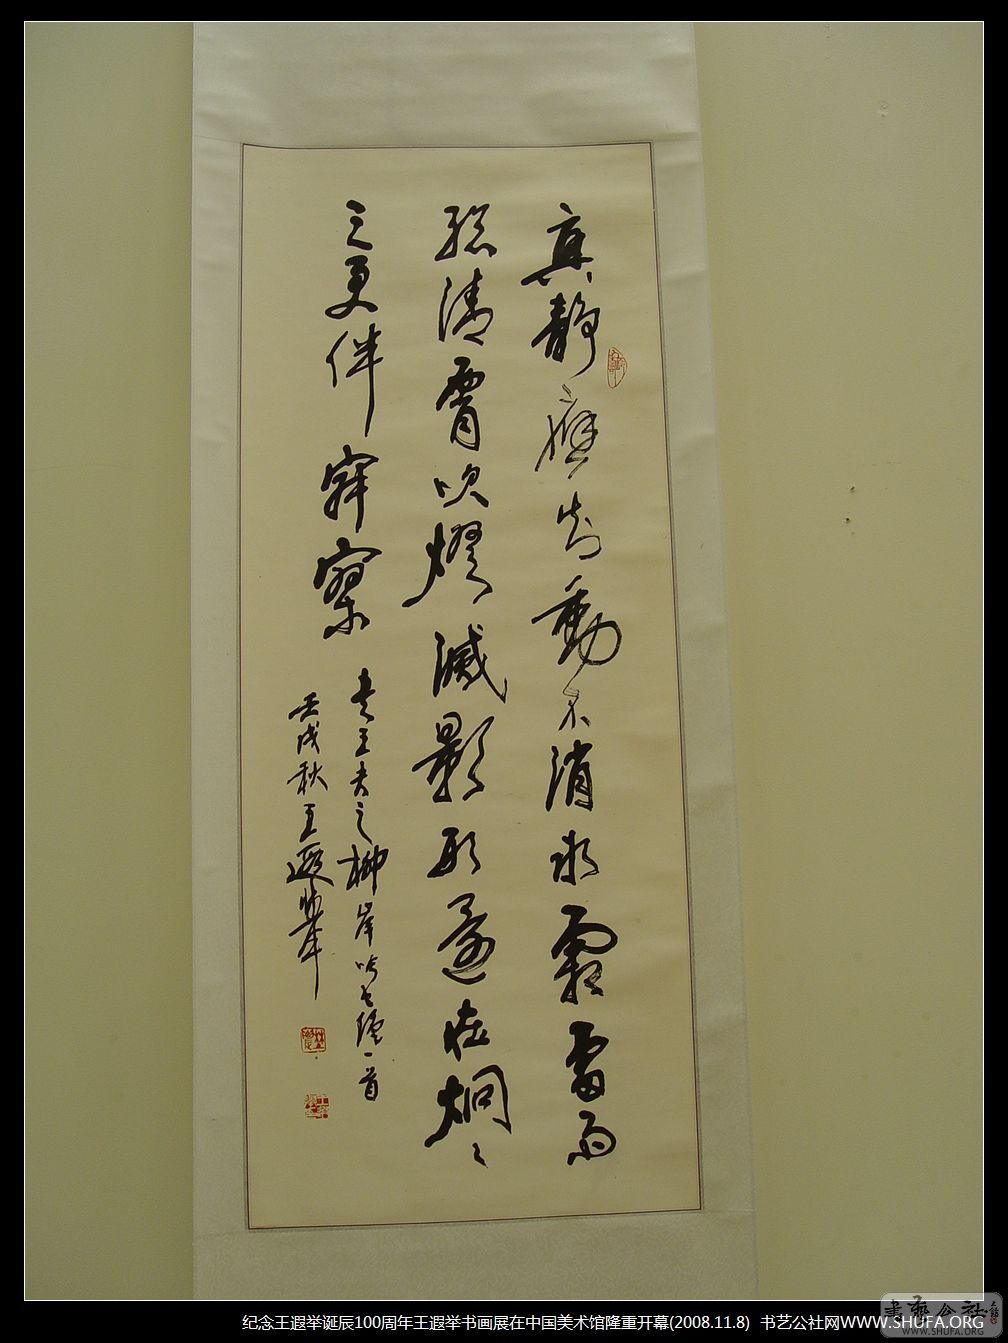 真靜應知動不消氷霜雷雨
聽清宵吹燈滅影形還在炯々
三更伴寂寥
書王夫之柳岸吟七絕一首
壬戌秋王遐舉
纪念王遐举诞辰100周年王遐举书画展在中国美术馆隆重开幕(2008.11.8) 书艺公社网WWW.SHUFA.ORG
書藝公社
WWW.SHUFA.ORG